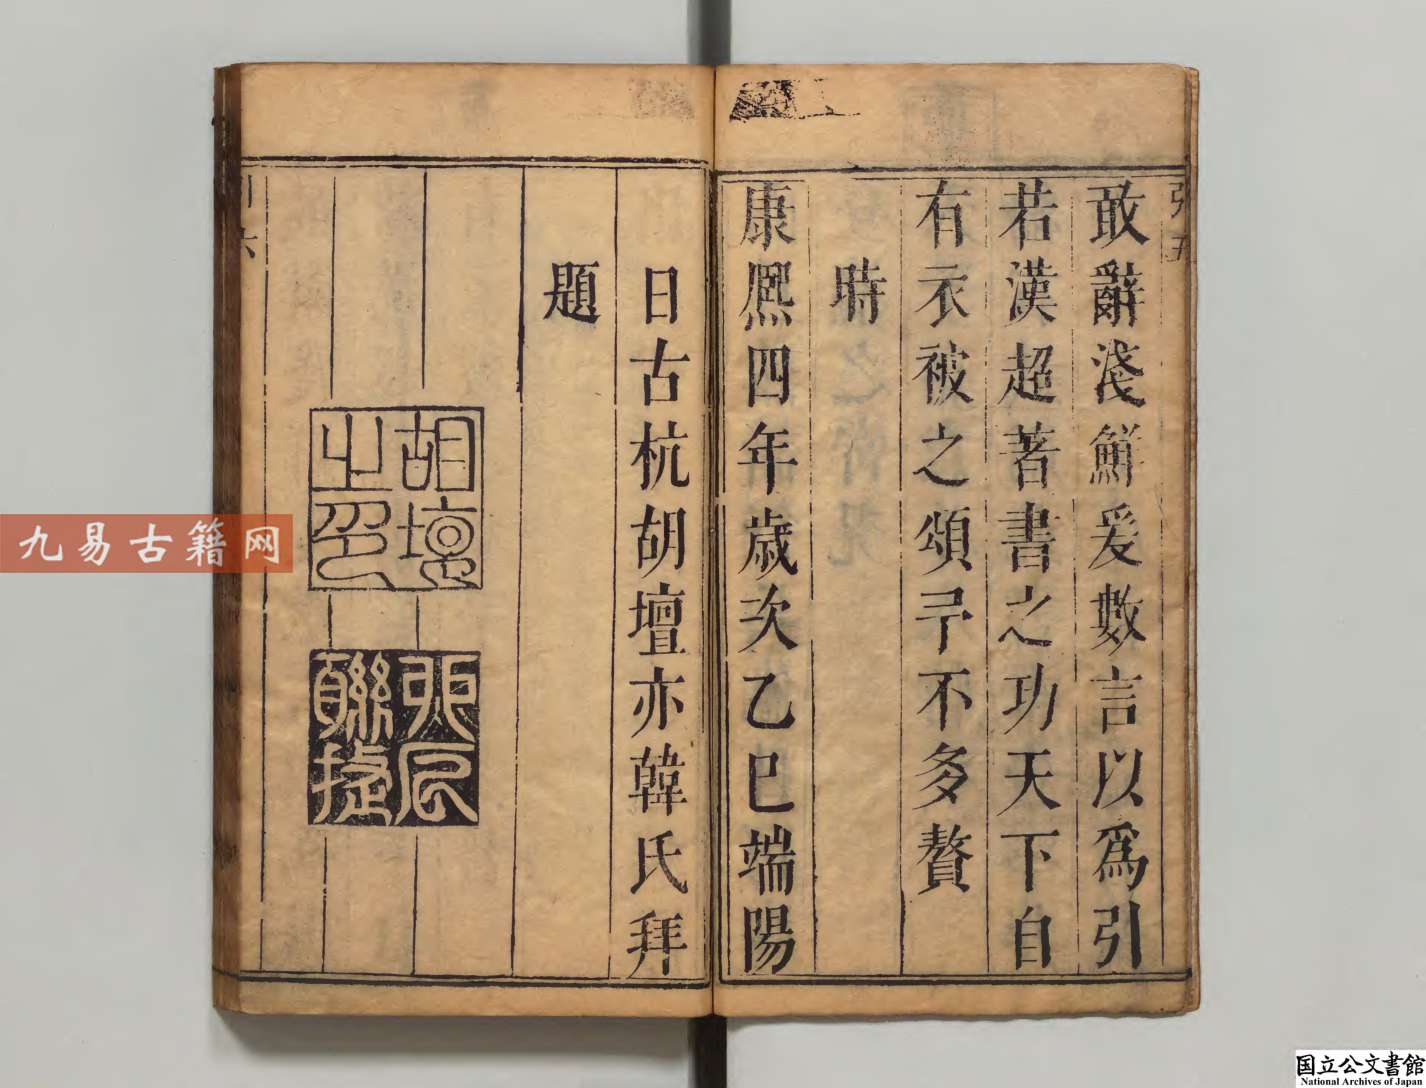 敢辭淺鮮爰數言以爲引
若漢超著書之功天下自
有衣被之頌予不多贅
時
康熈四年歲次乙巳端陽
日古杭胡壇亦韓氏拜
題
胡壇
之印
聯捷
九易古籍网
国立公文書館
National Archives of Japan